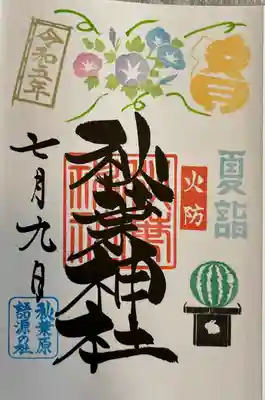 夏詣
火防
秋葉神社
令和五年
七月九日
秋葉原
語源の社